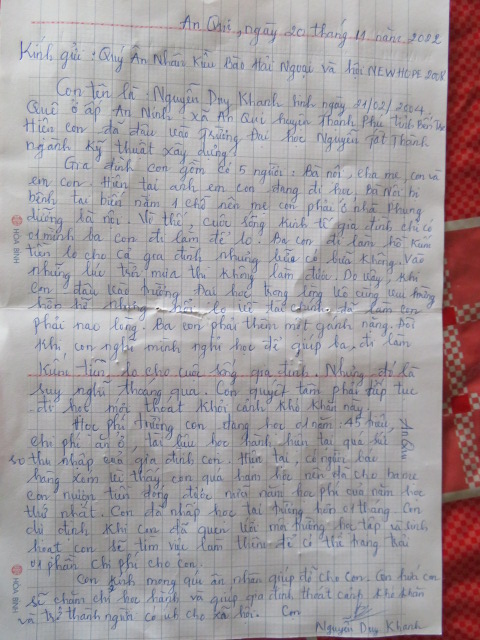 An Qui, ngày 20 tháng 11 năm 2022
Kính gửi : Quý Ân Nhân Kiều Bào Hải Ngoại và hội NEWHOPE 2008
Con tên là : Nguyễn Duy Khanh sinh ngày 21/02/2004.
Quê ở ấp An Ninh, xã An Qui huyện Thạnh Phú tỉnh Bến Tre
Hiện con đã đậu vào Trường Đại học Nguyễn Tất Thành
ngành kỹ thuật xây dựng.
Gia đình con gồm có 5 người : Bà nội, cha mẹ, con và
em con. Hiện tại anh em con đang đi học. Bà Nội bị
bệnh tai biến nằm 1 chỗ nên mẹ con phải ở nhà Phụng
dưỡng bà nội. Vì thế, cuộc sống kinh tế gia đình chỉ có
mình ba con đi làm để lo. Ba con đi làm hồ kiếm
tiền lo cho cả gia đình nhưng bữa có bữa không. Vào
những lúc trời mưa thì không làm được. Do vậy, khi
con đậu vào trường Đại học trong lòng vô cùng vui mừng
nhưng nỗi lo về tài chính đã làm con
phải nao lòng. Ba con phải thêm một gánh nặng. Đôi
khi con nghĩ mình nghỉ học để giúp ba, đi làm
kiếm tiền lo cho cuộc sống gia đình. Nhưng đó là
suy nghĩ thoáng qua. Con quyết tâm phải tiếp tục
đi học mới thoát khỏi cảnh khó khăn này.
Học phí trường con đang học 1 năm : 45 triệu,
chi phí ăn ở, tài liệu học hành hiện tại quá sức
so thu nhập của gia đình con. Hiện tại,
hàng xem là thấy, con quá ham học nên đã cho ba mẹ
con mượn tiền đóng được nửa năm học phí của năm học
thứ nhất. Con đã nhập học tại trường hơn 01 tháng. Con
dự định khi con đã quen với môi trường học tập và sinh
hoạt con sẽ tìm việc làm thêm để có thể trang trải
01 phần chi phí cho con.
Con kính mong quí ân nhân giúp đỡ cho con. Con hứa con
sẽ chăm chỉ học hành và giúp gia đình thoát cảnh khó khăn
và trở thành người có ích cho xã hội.
Con
Nguyễn Duy Khanh
HÒA BÌNH
HÒA BÌNH